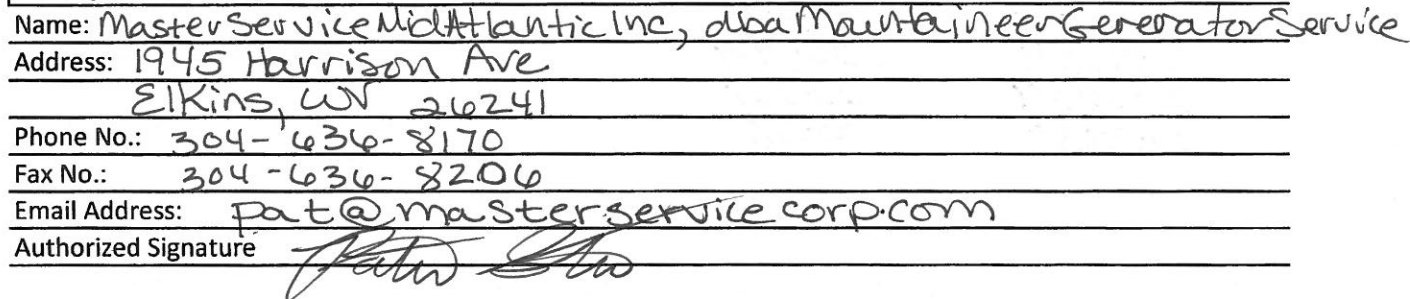 Name: Master Service MidAtlantic Inc, dba Mountaineer Generator Service
Address: 1945 Harrison Ave
Elkins, WV 26241
Phone No.: 304-636-8170
Fax No.: 304-636-8206
Email Address: pat@masterservicecorp.com
Authorized Signature